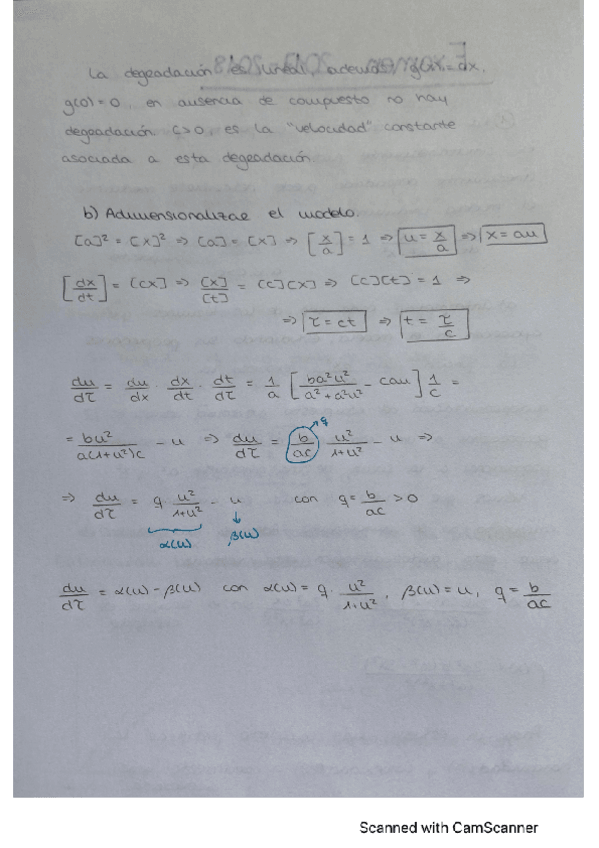 La degradación es lineal, además, g(x) = cx,
g(0) = 0, en ausencia de compuesto no hay
degradación c>0, es la "velocidad" constante
asociada a esta degradación
b) Adimensionalizar el modelo.
[a]² = [x]² ⇒ [a] = [x] ⇒ [x/a] = 1 ⇒ u = x/a ⇒ x = au
[dx/dt] = [cx] ⇒ [x]/[t] = [c][x] ⇒ [c][t] = 1 ⇒
⇒ τ = ct ⇒ t = τ/c
du/dτ = du/dx · dx/dt · dt/dτ = 1/a [ba²u²/(a²+a²u²) - cau] 1/c =
= bu²/(a(1+u²)c) - u ⇒ du/dτ = b/ac u²/(1+u²) - u ⇒
q
⇒ du/dτ = q u²/(1+u²) - u con q = b/ac > 0
α(u) β(u)
du/dτ = α(u) - β(u) con α(u) = q · u²/(1+u²), β(u) = u, q = b/ac
Scanned with CamScanner